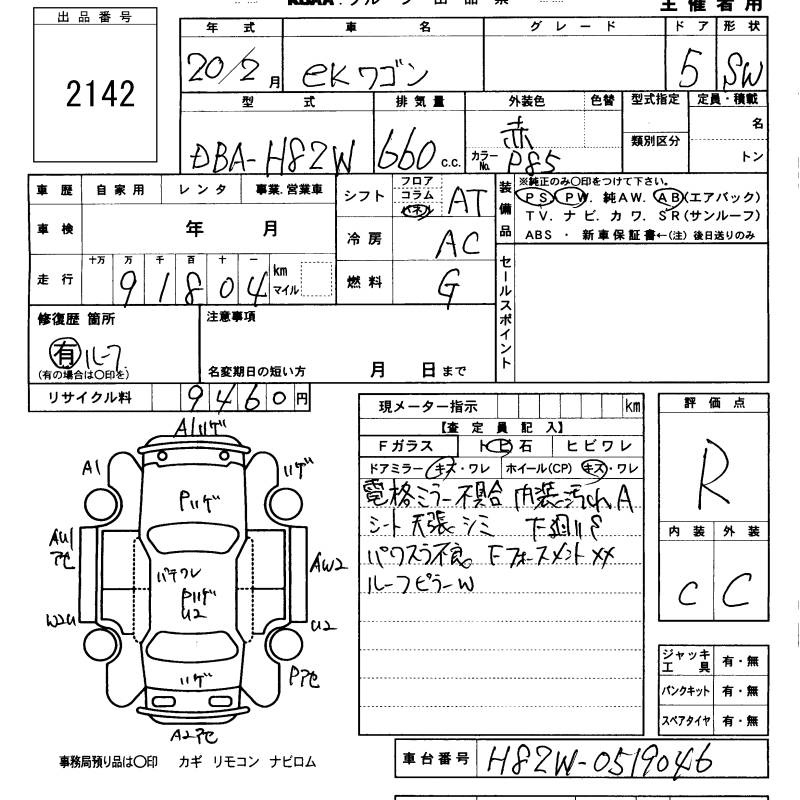 出品番号
2142
主催者用
年式 車名 グレード ドア 形状
20/2月 eKワゴン 5 SW
型式 排気量 外装色 色替 型式指定 定員・積載
DBA-H82W 660 c.c. 赤 カラーNo. P85 類別区分 名 トン
車歴 自家用 レンタ 事業.営業車
車検 年 月
走行 十万 万 千 百 十 一
91804 km マイル
シフト フロア コラム パネル AT
冷房 AC
燃料 G
装備品 ※純正のみ〇印をつけて下さい。
PS. PW. 純AW. AB(エアバック)
TV. ナビ. カワ. SR(サンルーフ)
ABS ・ 新車保証書←(注)後日送りのみ
セールスポイント
修復歴 箇所 注意事項
有 ルーフ
(有の場合は〇印を) 名変期日の短い方 月 日まで
リサイクル料 9460円
現メーター指示 km
【査定員記入】
Fガラス トビ石 ヒビワレ
ドアミラー(キズ・ワレ ホイール(CP) キズ・ワレ
電格ミラー不具合 内装汚れA
シート 天張シミ 下廻りS
パワスラ不良。 Fフォースメント××
ルーフピラーW
評価点
R
内装 外装
C C
ジャッキ工具 有・無
パンクキット 有・無
スペアタイヤ 有・無
A1 ハゲ
A1
ハゲ
Pハゲ
AU1
アセ
AW2
パテワレ
Pハゲ
U2
W2U
U2
ハゲ
Pアセ
A2アセ
事務局預り品は〇印 カギ リモコン ナビロム
車台番号 H82W-0519046